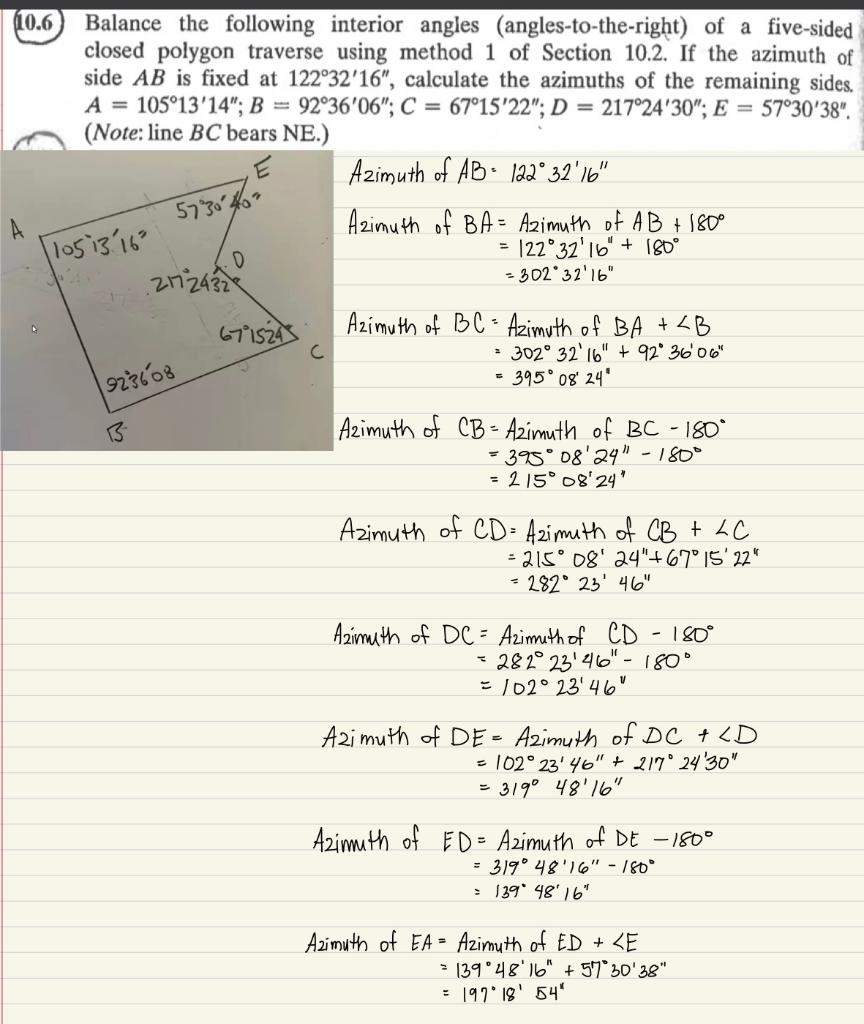 10.6 Balance the following interior angles (angles-to-the-right) of a five-sided
closed polygon traverse using method 1 of Section 10.2. If the azimuth of
side AB is fixed at 122°32′16″, calculate the azimuths of the remaining sides.
A = 105°13′14″; B = 92°36′06″; C = 67°15′22″; D = 217°24′30″; E = 57°30′38″.
(Note: line BC bears NE.)
E
57°30′40″
A
105°13′16″
D
217°2432″
67°1524″
C
92°36′08
B
Azimuth of AB = 122° 32' 16"
Azimuth of BA = Azimuth of AB + 180°
= 122° 32' 16" + 180°
= 302° 32' 16"
Azimuth of BC = Azimuth of BA + <B
= 302° 32' 16" + 92° 36' 06"
= 395° 08' 24"
Azimuth of CB = Azimuth of BC - 180°
= 395° 08' 24" - 180°
= 215° 08' 24"
Azimuth of CD = Azimuth of CB + <C
= 215° 08' 24" + 67° 15' 22"
= 282° 23' 46"
Azimuth of DC = Azimuth of CD - 180°
= 282° 23' 46" - 180°
= 102° 23' 46"
Azimuth of DE = Azimuth of DC + <D
= 102° 23' 46" + 217° 24' 30"
= 319° 48' 16"
Azimuth of ED = Azimuth of DE - 180°
= 319° 48' 16" - 180°
= 139° 48' 16"
Azimuth of EA = Azimuth of ED + <E
= 139° 48' 16" + 57° 30' 38"
= 197° 18' 54"